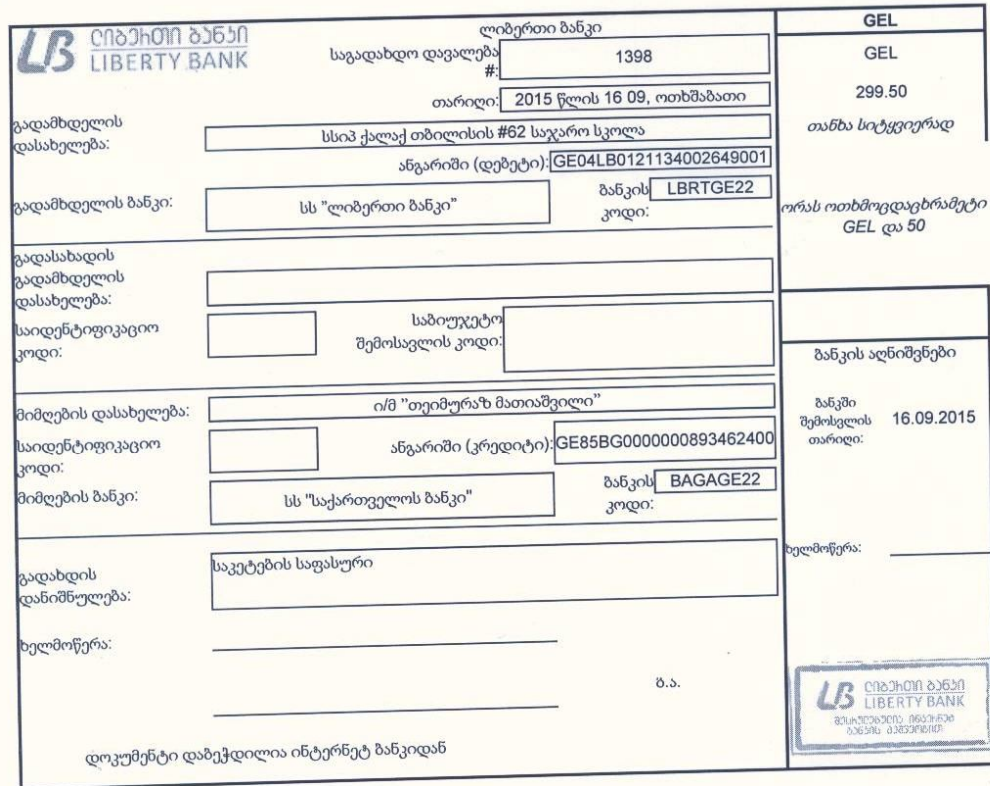 ლიბერთი ბანკი
LIBERTY BANK
ლიბერთი ბანკი
საგადახდო დავალება #: 1398
თარიღი: 2015 წლის 16 09, ოთხშაბათი
გადამხდელის დასახელება: სსიპ ქალაქ თბილისის #62 საჯარო სკოლა
ანგარიში (დებეტი): GE04LB0121134002649001
გადამხდელის ბანკი: სს "ლიბერთი ბანკი" ბანკის კოდი: LBRTGE22
გადასახადის
გადამხდელის
დასახელება:
საიდენტიფიკაციო კოდი:
საბიუჯეტო შემოსავლის კოდი:
მიმღების დასახელება: ი/მ "თეიმურაზ მათიაშვილი"
საიდენტიფიკაციო კოდი:
ანგარიში (კრედიტი): GE85BG0000000893462400
მიმღების ბანკი: სს "საქართველოს ბანკი" ბანკის კოდი: BAGAGE22
გადახდის დანიშნულება: საკეტების საფასური
ხელმოწერა:
ბ.ა.
დოკუმენტი დაბეჭდილია ინტერნეტ ბანკიდან
GEL
GEL
299.50
თანხა სიტყვიერად
ორას ოთხმოცდაცხრამეტი
GEL და 50
ბანკის აღნიშვნები
ბანკში
შემოსვლის
თარიღი: 16.09.2015
ხელმოწერა:
ლიბერთი ბანკი
LIBERTY BANK
შესრულებულია ინტერნეტ
ბანკის მეშვეობით